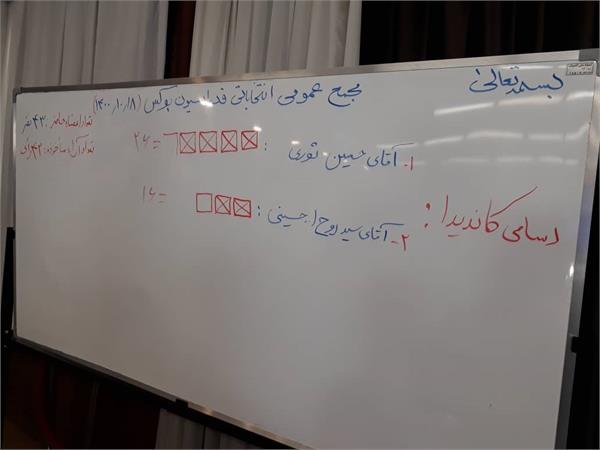 بسمه تعالی
مجمع عمومی انتخاباتی فدراسیون بوکس (۱۴۰۰/۱۰/۸)
تعداد اعضاء حاضر: ۴۳ نفر
تعداد آراء مأخوذه: ۴۲ رأی
اسامی کاندیدا:
۱- آقای حسین ثوری : = ۲۶
۲- آقای سید روح ا... حسینی : = ۱۶